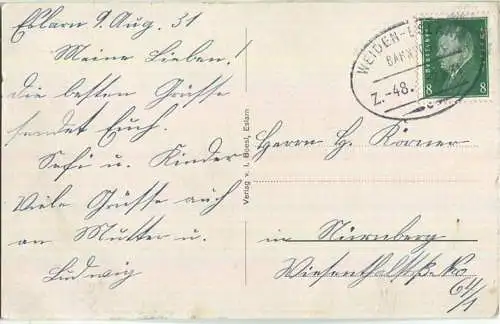 Eslarn 9. Aug. 31
Meine Lieben!
Die besten Grüsse
sendet Euch.
Sefi u. Kinder
Viele Grüsse auch
an Mutter u.
Ludwig
Verlag v. I. Boesl, Eslarn
WEIDEN-
BAHN
Z.-48.
Deutsches
8 8
Herrn H. Körner
in Nürnberg
Wiesenthalstraße No
64/1